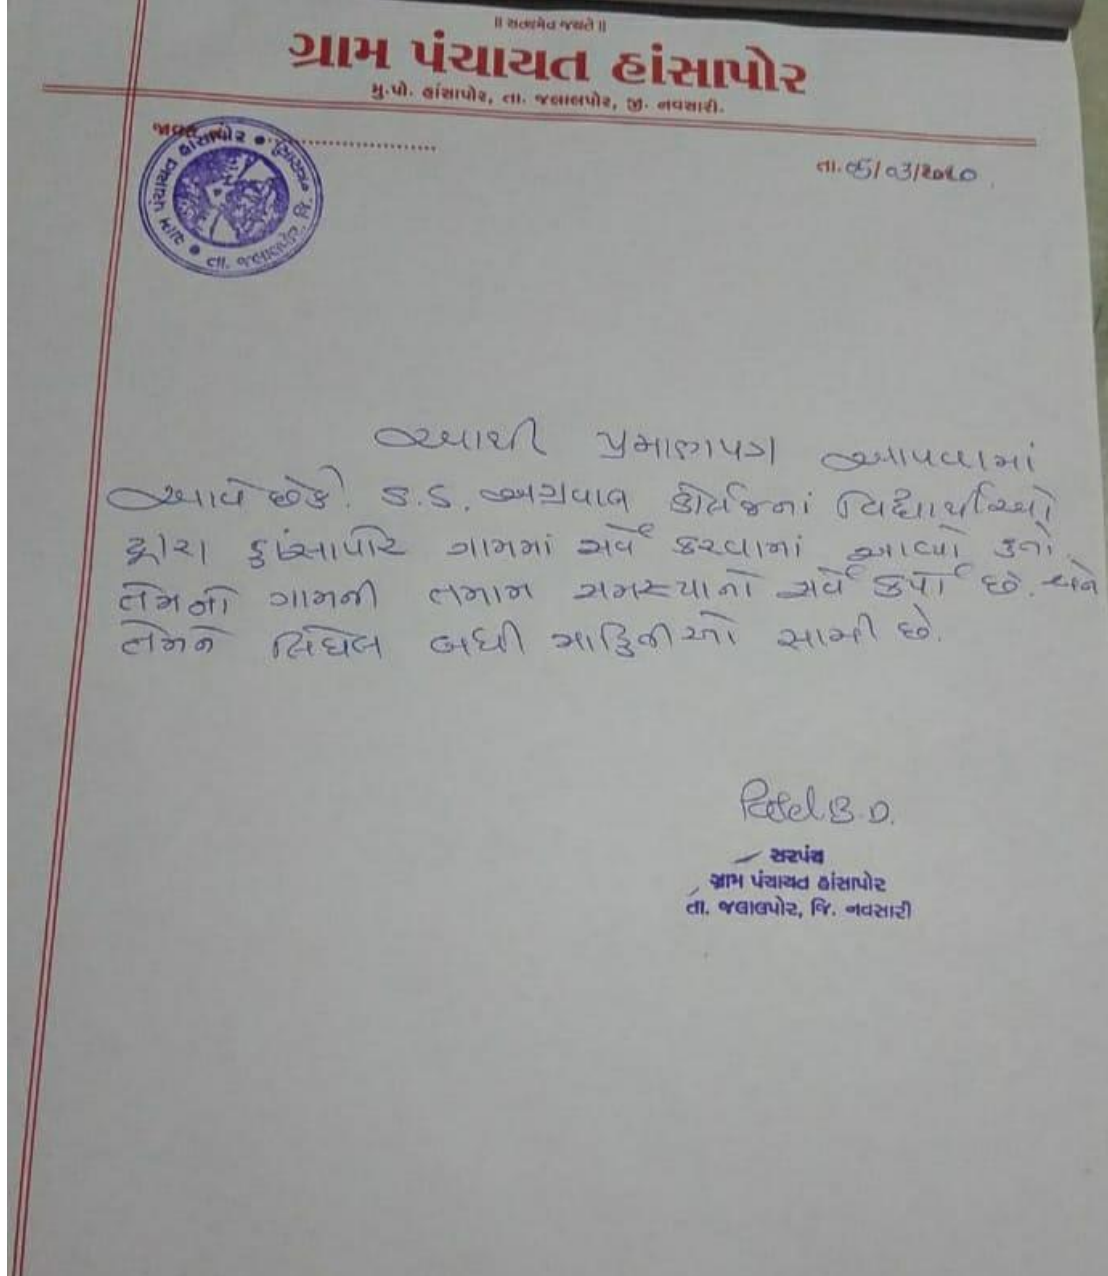 ॥ સત્યમેવ જયતે ॥
ગ્રામ પંચાયત હાંસાપોર
મુ.પો. હાંસાપોર, તા. જલાલપોર, જી. નવસારી.
ગ્રામ પંચાયત હાંસાપોર • તા. જલાલપોર, જિ.
તા. 05/03/2020
આથી પ્રમાણપત્ર આપવામાં
આવે છેકે. S.S. અગ્રવાલ કોલેજનાં વિદ્યાર્થીઓ
દ્વારા હાંસાપોર ગામમાં સર્વે કરવામાં આવ્યો હતો.
તેમની ગામની તમામ સમસ્યાનો સર્વે કર્યો છે. અને
તેમને લિધેલ બધી માહિતીઓ સાચી છે.
Patel B.D.
સરપંચ
ગ્રામ પંચાયત હાંસાપોર
તા. જલાલપોર, જિ. નવસારી